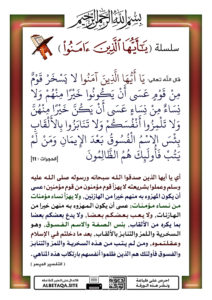 بسم الله الرحمن الرحيم
سلسلة ( يَا أَيُّهَا الَّذِينَ ءَامَنُوا )
قال الله تعالى: يَا أَيُّهَا الَّذِينَ آمَنُوا لَا يَسْخَرْ قَوْمٌ
مِنْ قَوْمٍ عَسَى أَنْ يَكُونُوا خَيْرًا مِنْهُمْ وَلَا
نِسَاءٌ مِنْ نِسَاءٍ عَسَى أَنْ يَكُنَّ خَيْرًا مِنْهُنَّ
وَلَا تَلْمِزُوا أَنْفُسَكُمْ وَلَا تَنَابَزُوا بِالْأَلْقَابِ
بِئْسَ الِاسْمُ الْفُسُوقُ بَعْدَ الْإِيمَانِ وَمَنْ لَمْ
يَتُبْ فَأُولَئِكَ هُمُ الظَّالِمُونَ
[الحجرات - 11]
أي يا أيها الذين صدقوا الله سبحانه ورسوله صلى الله عليه
وسلم وعملوا بشريعته لا يهزأ قوم مؤمنون من قوم مؤمنين؛ عسى
أن يكون المهزوء به منهم خيرا من الهازئين، ولا يهزأ نساء مؤمنات
من نساء مؤمنات؛ عسى أن يكون المهزوء به منهن خيرا من
الهازئات، ولا يعب بعضكم بعضا، ولا يدع بعضكم بعضا
بما يكره من الألقاب، بئس الصفة والاسم الفسوق، وهو
السخرية واللمز والتنابز بالألقاب، بعد ما دخلتم في الإسلام
وعقلتموه، ومن لم يتب من هذه السخرية واللمز والتنابز
والفسوق فأولئك هم الذين ظلموا أنفسهم بارتكاب هذه المناهي.
( التفسير الميسر )
ALBETAQA.SITE
احرص على طباعة
ونشر هذه الورقة